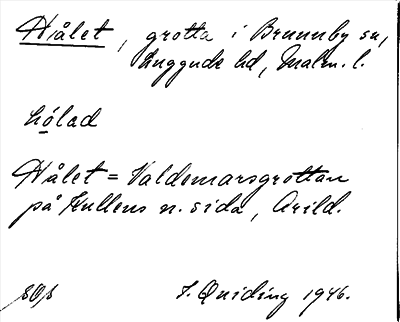 Hålet, grotta i Brunnby sn,
Luggude hd, Malm. l.
hólad
Hålet = Valdemarsgrottan
på Kullens n. sida, Arild.
S. Quiding 1946.